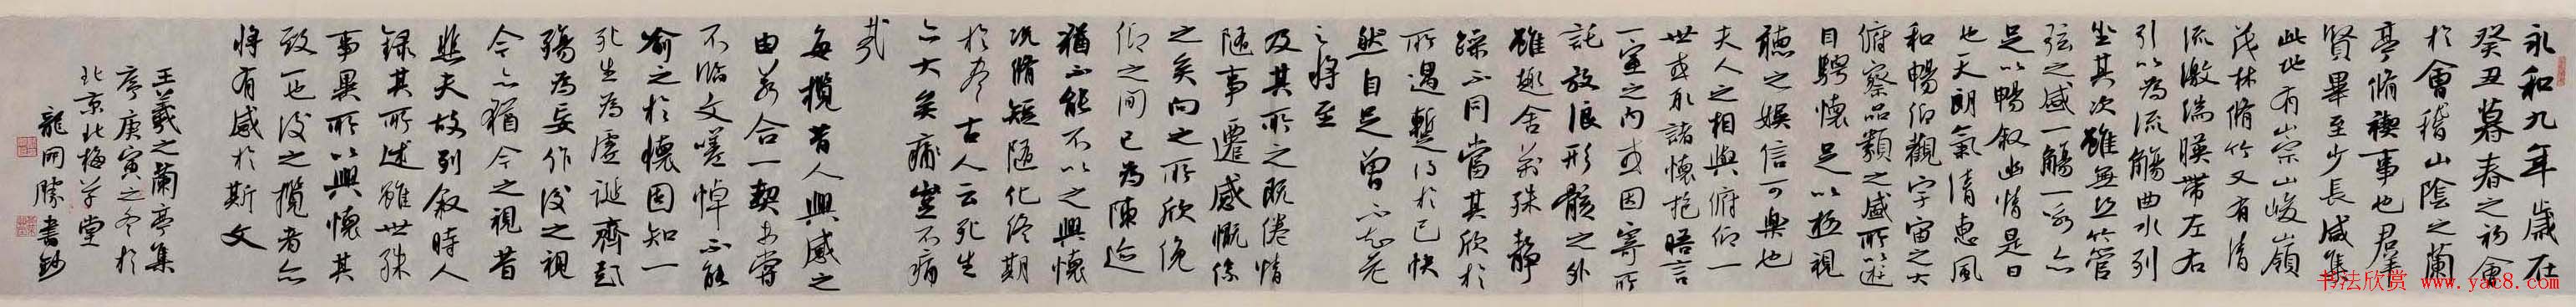 永和九年歲在
癸丑暮春之初會
於會稽山陰之蘭
亭脩禊事也羣
賢畢至少長咸集
此地有崇山峻嶺
茂林脩竹又有清
流激湍暎帶左右
引以為流觴曲水列
坐其次雖無絲竹管
弦之盛一觴一詠亦
足以暢叙幽情是日
也天朗氣清惠風
和暢仰觀宇宙之大
俯察品類之盛所以遊
目騁懷足以極視
聽之娛信可樂也
夫人之相與俯仰一
世或取諸懷抱晤言
一室之內或因寄所
託放浪形骸之外
雖趣舍萬殊靜
躁不同當其欣於
所遇蹔得於己快
然自足曾不知老
之將至
及其所之既倦情
隨事遷感慨係
之矣向之所欣俛
仰之間已為陳迹
猶不能不以之興懷
況脩短隨化終期
於盡古人云死生
亦大矣痛豈不痛
哉
每攬昔人興感之
由若合一契未嘗
不臨文嗟悼不能
喻之於懷固知一
死生為虛誕齊彭
殤為妄作後之視
今亦猶今之視昔
悲夫故列叙時人
錄其所述雖世殊
事異所以興懷其
致一也後之攬者亦
將有感於斯文
王羲之蘭亭集
序庚寅之冬於
北京北梅草堂
龍開勝書鈔
书法欣赏 www.yac8.com